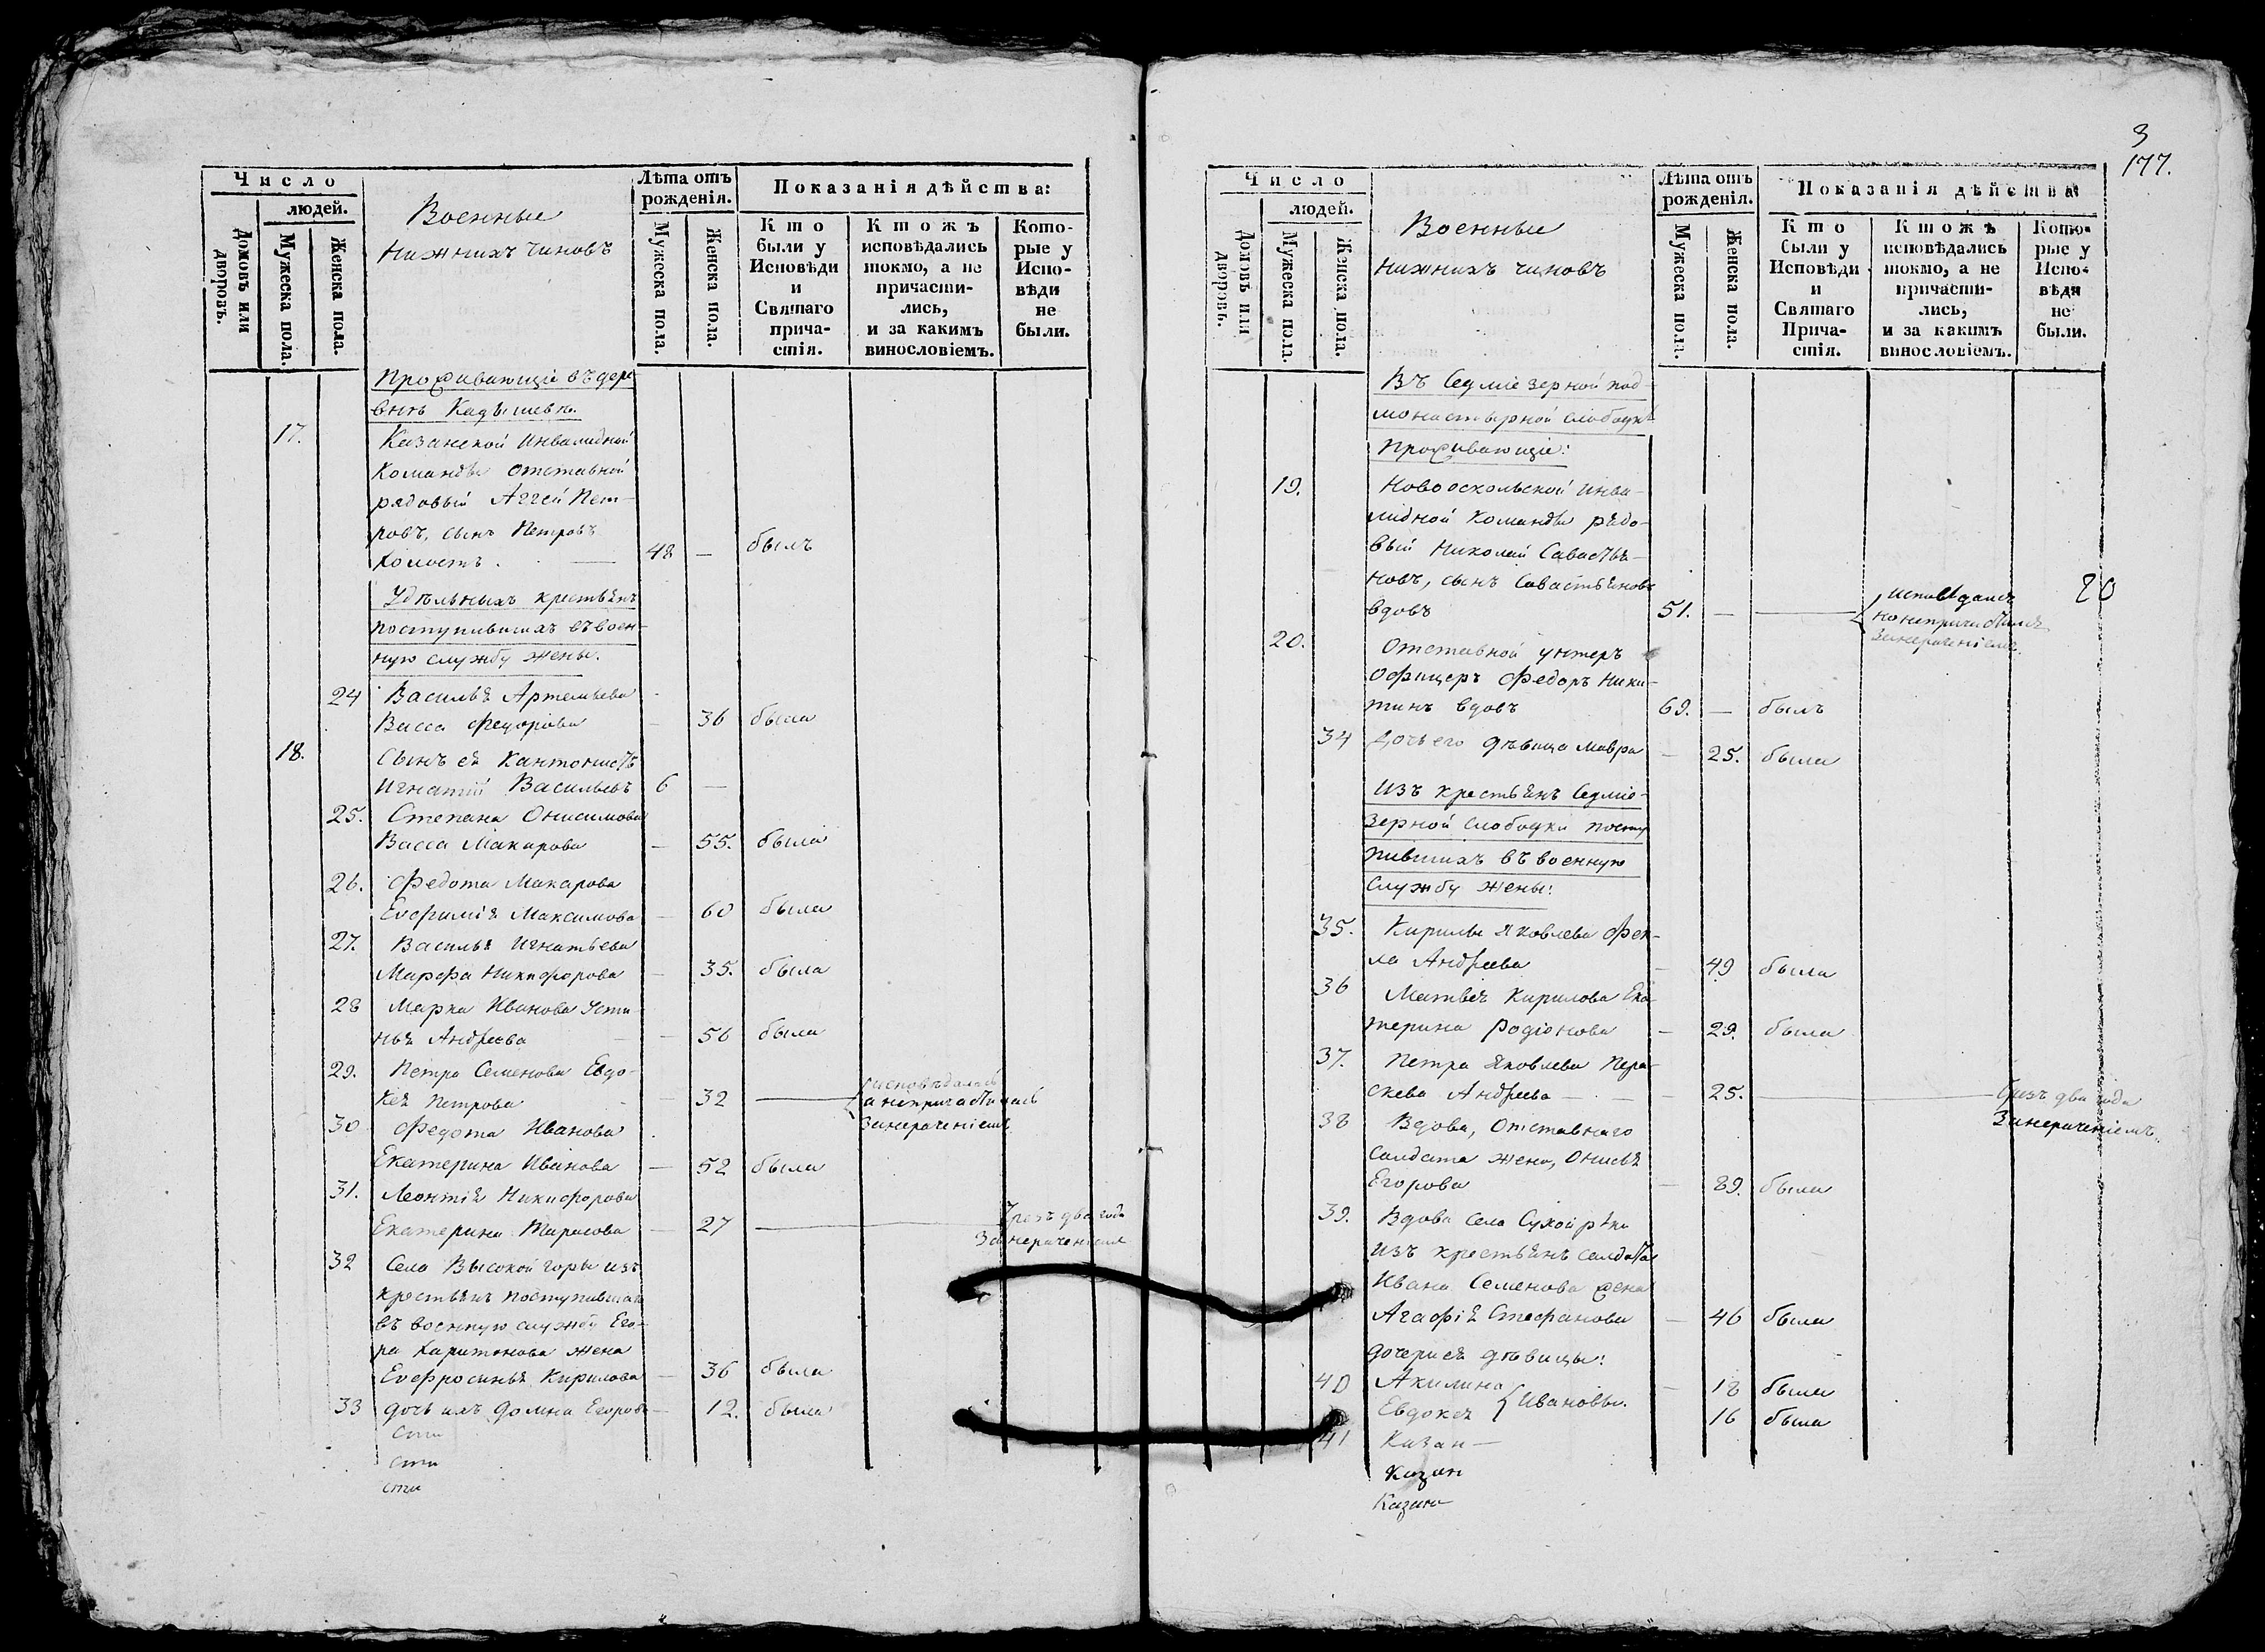 Число
людей.
Домовъ или дворовъ.
Мужеска пола.
Женска пола.
Военные
нижнихъ чиновъ
Лѣта отъ
рожденія.
Мужеска пола.
Женска пола.
Показанія дѣйства:
Кто
были у
Исповѣди
и
Святаго
прича-
стія.
Кто жъ
исповѣдались
токмо, а не
причасти-
лись,
и за какимъ
винословіемъ.
Кото-
рые у
Испо-
вѣди
не
были.
Проживающіе въ дере
внѣ Кадышевѣ.
17. Казанской Инвалидной
Команды отставной
рядовый Аггей Пет-
ровъ, сынъ Петровъ
холостъ. 48 — былъ
Удѣльныхъ крестьянъ
поступившихъ въ воен-
ную службу жены.
24 Василья Артемьева
Васса Федорова — 36 была
18. Сынъ ея Кантонистъ
Игнатій Васильевъ 6 —
25. Степана Онисимова
Васса Макарова — 55. была
26. Федота Макарова
Евфимія Максимова — 60 была
27. Василья Игнатьева
Марфа Никифорова — 35. была
28 Марка Иванова Усти
нья Андреева — 56 была
29. Петра Семенова Евдо-
кея Петрова — 32 — исповѣдалась
а непричастилась
занерачениемъ
30 Федота Иванова
Екатерина Иванова — 52 была
31. Леонтія Никифорова
Екатерина Тарасова — 27 — Чрезъ два года
Занерачениемъ
32 Села Высокой горы изъ
крестьянъ поступившаго
въ военную службу Его-
ра Харитонова жена
Евфросинья Кирилова — 36 была
33 дочь ихъ Домна Егорова — 12. была
Сти
сти
сти
3
177.
Число
людей.
Домовъ или дворовъ.
Мужеска пола.
Женска пола.
Военные
нижнихъ чиновъ
Лѣта отъ
рожденія.
Мужеска пола.
Женска пола.
Показанія дѣйства
Кто
были у
Исповѣди
и
Святаго
Прича-
стія.
Кто жъ
исповѣдались
токмо, а не
причасти-
лись,
и за какимъ
винословіемъ.
Кото-
рые у
Испо-
вѣди
не
были.
Въ Седміезерной под-
монастырной слободкѣ
Проживающіе:
19. Новооскольской Инва-
лидной Команды рядо-
вый Николай Савастья-
новъ, сынъ Савастьяновъ
вдовъ 51. — исповѣдался
но непричастился
занерачениемъ.
20
20. Отставной унтеръ
Офицеръ Федоръ Ники-
тинъ вдовъ 69. — былъ
34 Дочь его дѣвица Мавра — 25. была
Изъ крестьянъ Седміе-
зерной слободки посту
пившихъ въ военную
службу жены:
35. Кирилы Яковлева Фек-
ла Андреева — 49 была
36 Матвея Кирилова Ека-
терина Родіонова — 29. была
37. Петра Яковлева Пара-
скева Андреева — 25. — Чрезъ два года
Занерачениемъ.
38 Вдова, Отставнаго
солдата жена, Онисья
Егорова — 89. была
39. Вдова Села Сухой рѣки
изъ крестьянъ солдата
Ивана Семенова жена
Агафія Стефанова — 46 была
дочери ея дѣвицы:
40 Акилина — 18 была
Ивановы.
41 Евдокея 16 была
Казан —
Казан
Казан